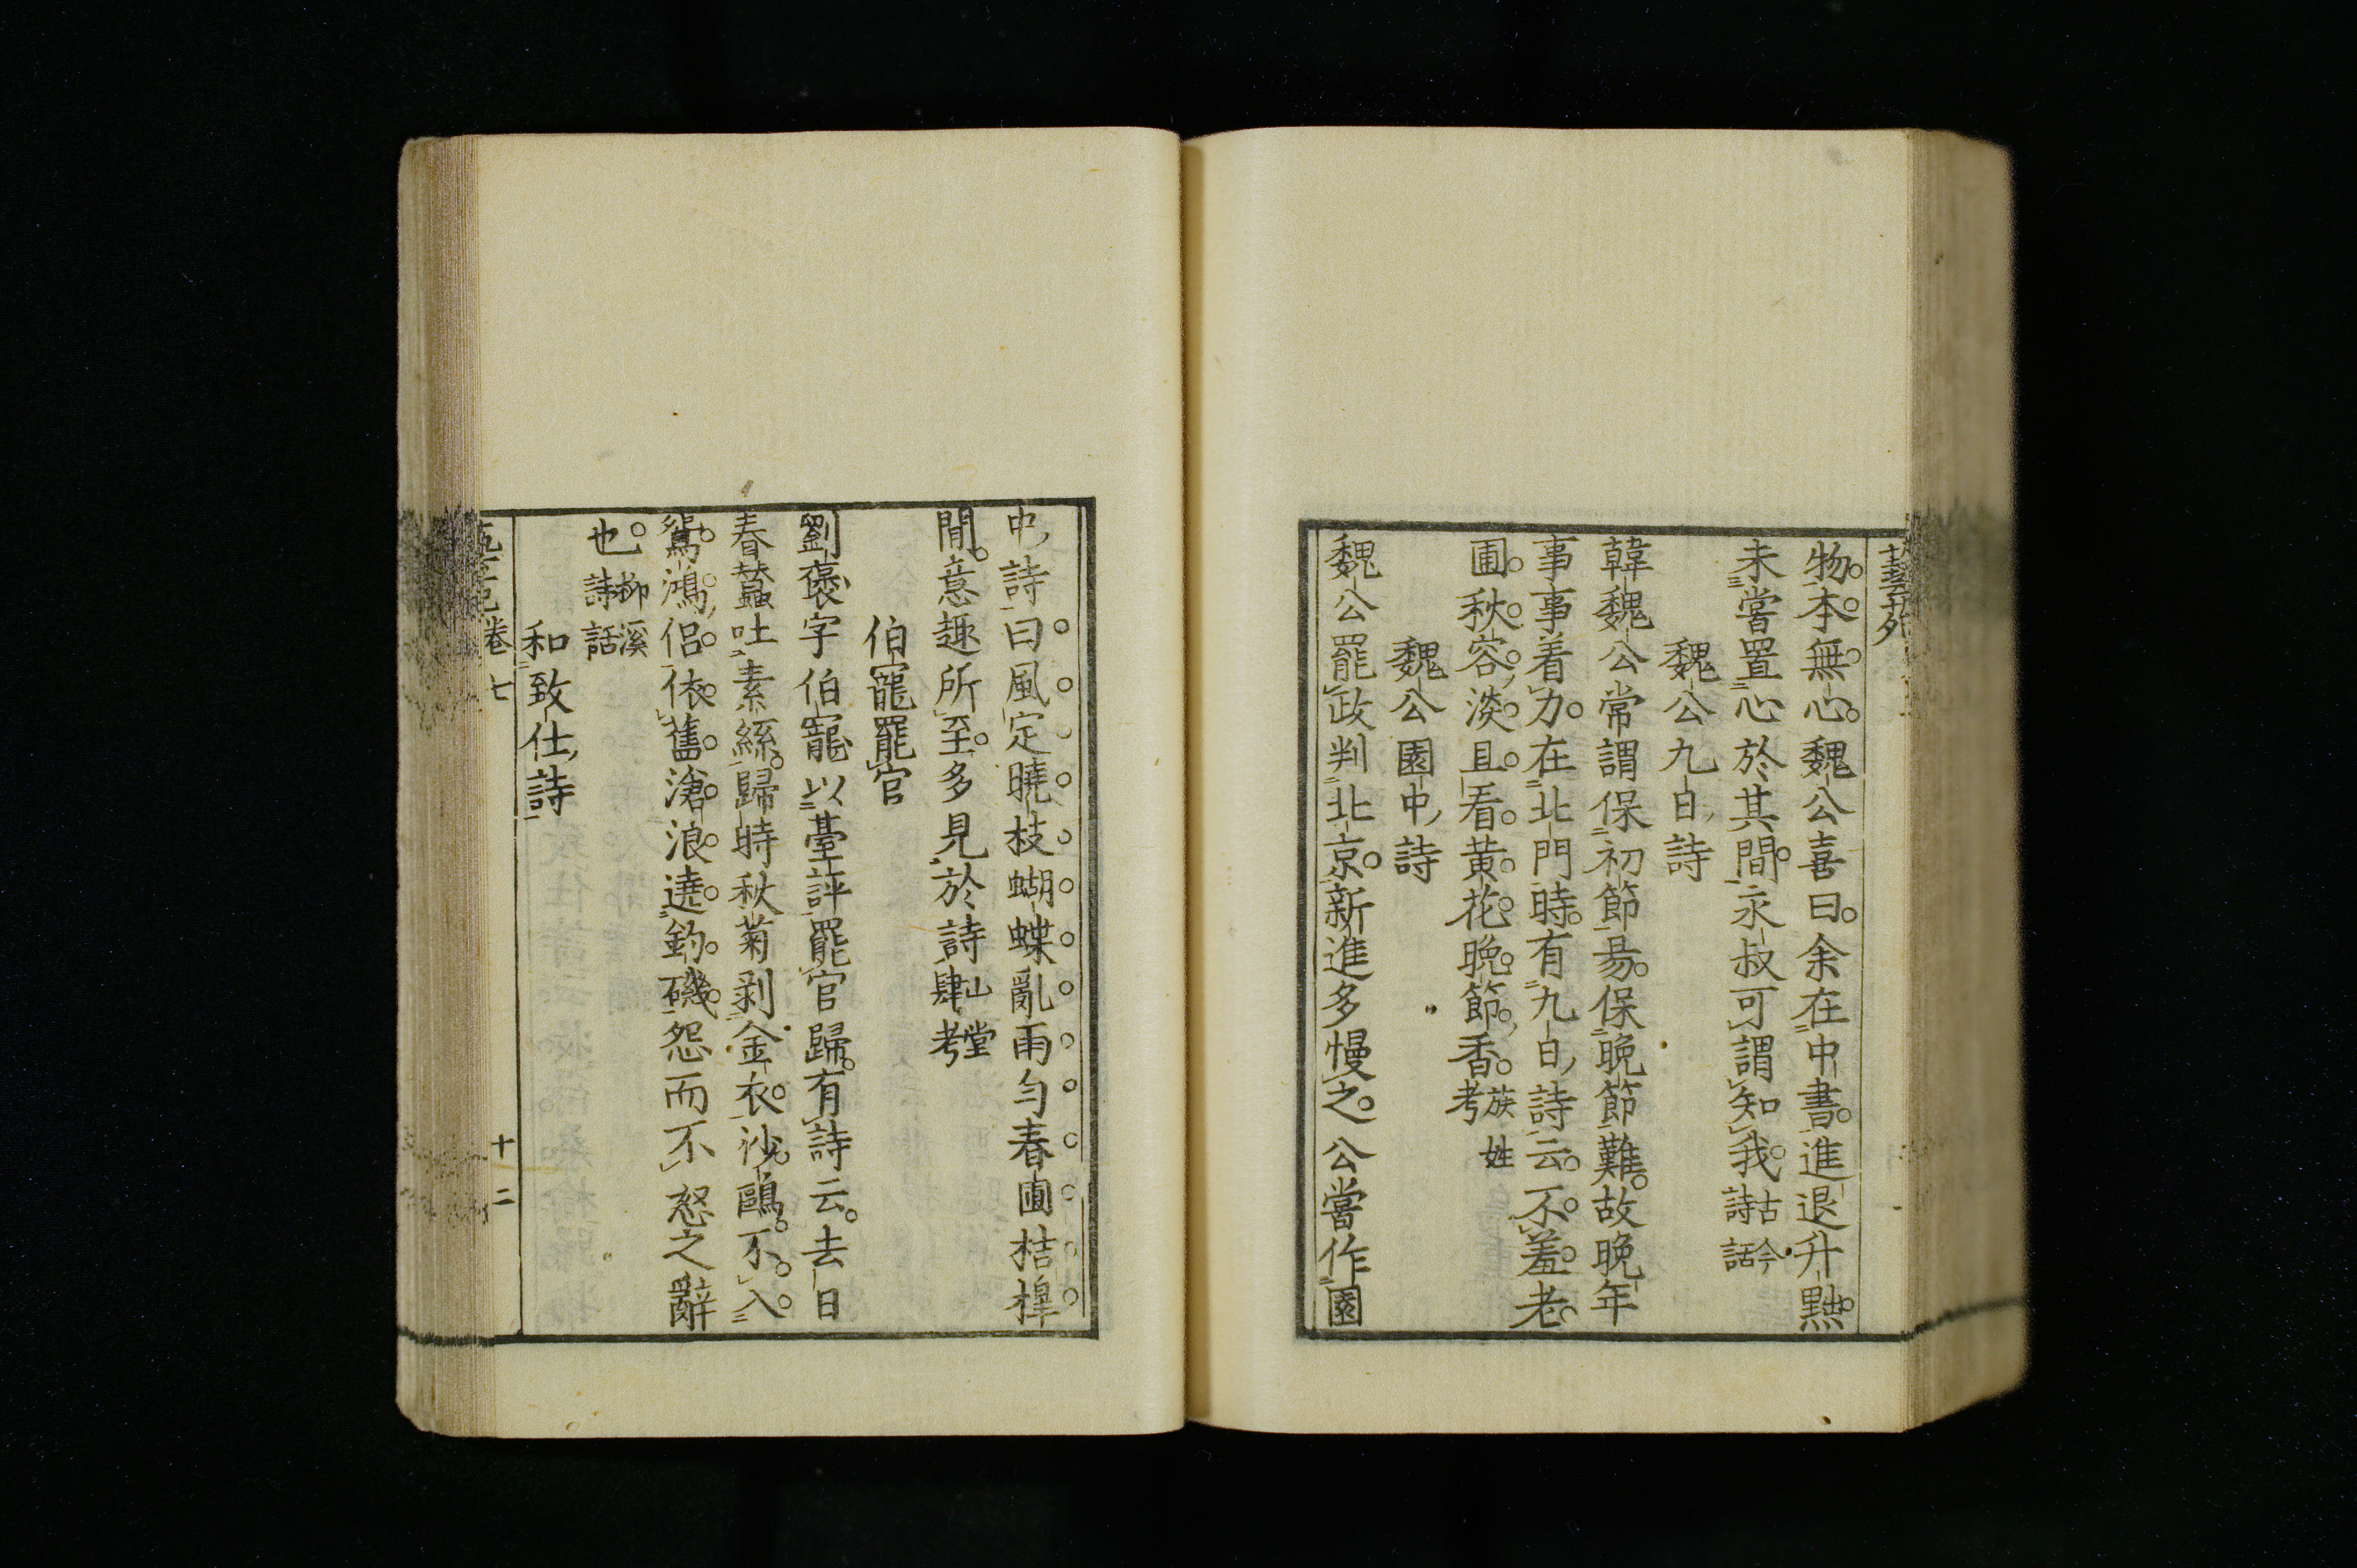 物本無心魏公喜曰余在中書進退升黜
未嘗置心於其間永叔可謂知我古今詩話
魏公九日詩
韓魏公常謂保初節易保晚節難故晚年
事事着力在北門時有九日詩云不羞老
圃秋容淡且看黄花晚節香族姓考
魏公園中詩
魏公罷政判北京新進多慢之公嘗作園
中詩曰風定曉枝蝴蝶亂雨匀春圃桔槹
閒意趣所至多見於詩山堂肆考
伯寵罷官
劉襃字伯寵以臺評罷官歸有詩云去日
春蠶吐素絲歸時秋菊剥金衣沙鷗不入
鴛鴻侣依舊滄浪遶釣磯怨而不怒之辭
也柳溪詩話
和致仕詩
卷七
十二